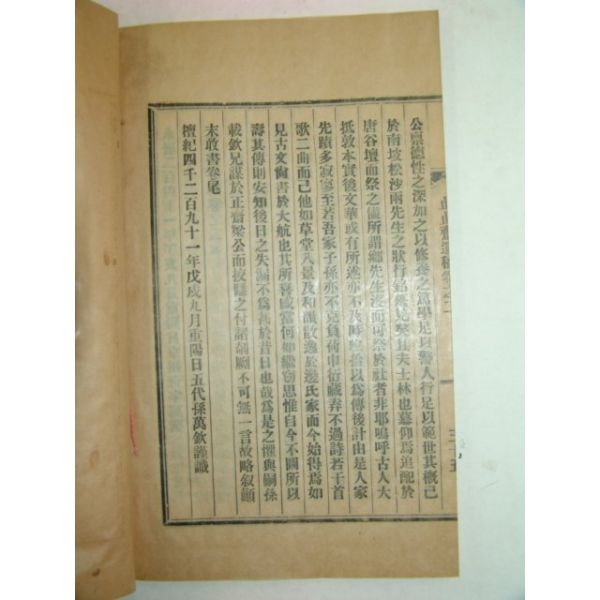 公禀德性之深加之以修養之篤學足以警人行足以範世其槪已
於南坡松沙兩先生之狀行銘
士林也慕仰焉追配於
唐谷壇而祭之所謂鄕先生沒而可祭於社者非耶嗚呼古人大
抵敦本實後文華或有所述亦不及時收拾以爲傳後計由是人家
先蹟多寂寥至若吾家子孫亦不克負荷巾衍藏弆不過詩若干首
歌二曲而已他如草堂八景及和漁散逸於邊氏家而今始得焉如
見古文尙書於大航也其所喜歐當何如繼竊思惟自今不圖所以
壽其傳則安知後日之失漏不爲甚於昔日也哉爲是之懼與嗣孫
載欽兄謀於正齋梁公面校隨之付諸剞劂不可無一言故略叙顚
末收書卷尾
檀紀四千二百九十一年戊戌九月重陽日五代孫萬欽謹識